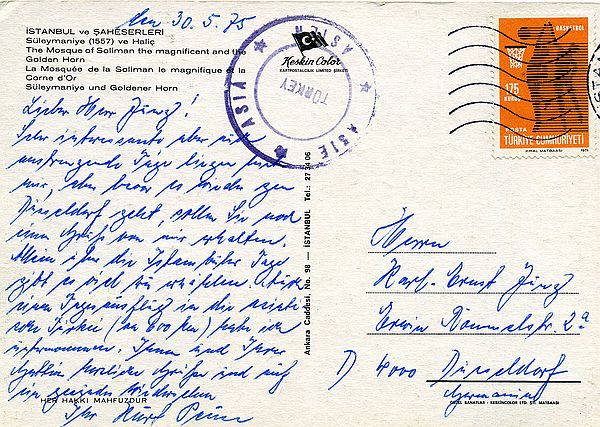 den 30.5.75
İSTANBUL ve ŞAHESERLERİ
Süleymaniye (1557) ve Haliç
The Mosque of Soliman the magnificent and the
Golden Horn
La Mosquée de la Soliman le magnifique et la
Corne d'Or
Süleymaniye und Goldener Horn
Keskin Color
KARTPOSTALCILIK LIMITED ŞIRKETI
ASIA
ASIEN
ASIE
TURKEY
BASKETBOL
175
KURUŞ
POSTA
TÜRKİYE CUMHURİYETİ
Lieber Herr Jünz!
Sehr interessante aber auch
anstrengende Tage liegen hinter
mir, aber bevor es wieder gen
Düsseldorf geht, sollen Sie noch
einen Gruß von mir erhalten.
Allein über die Istanbuler Tage
gibt es viel zu erzählen. Auch
einen Tagesausflug in die asiati
sche Türkei (ca 600 km) habe ich
unternommen. Ihnen und Ihrer
Gattin herzliche Grüße und auf
ein gesundes Wiedersehen
Ihr Kurt
HER HAKKI MAHFUZDUR
Ankara Caddesi. No. 98 — İSTANBUL Tel.: 27 24 06
Herrn
Karl-Ernst Jünz
Erwin Rommelstr. 2a
D 4000 Düsseldorf
Germania
GÜZEL SANATLAR - KESKINCOLOR LTD. ŞTİ. MATBAASI